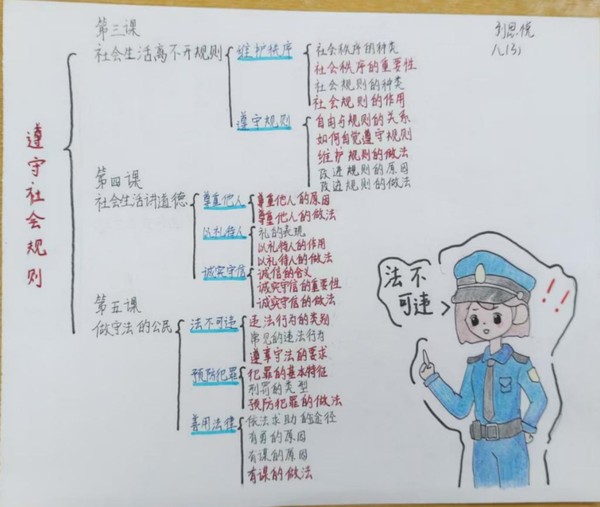 第三课
刘思悦
八(3)
社会生活离不开规则
维护秩序
社会秩序的种类
社会秩序的重要性
社会规则的种类
社会规则的作用
遵守规则
自由与规则的关系
如何自觉遵守规则
维护规则的做法
改进规则的原因
改进规则的做法
遵守社会规则
第四课
社会生活讲道德
尊重他人
尊重他人的原因
尊重他人的做法
以礼待人
礼的表现
以礼待人的作用
以礼待人的做法
诚实守信
诚信的含义
诚实守信的重要性
诚实守信的做法
第五课
做守法的公民
法不可违
违法行为的类别
常见的违法行为
遵章守法的要求
预防犯罪
犯罪的基本特征
刑罚的类型
预防犯罪的做法
善用法律
依法求助的途径
有勇的原因
有谋的原因
有谋的做法
法不
可违
!!